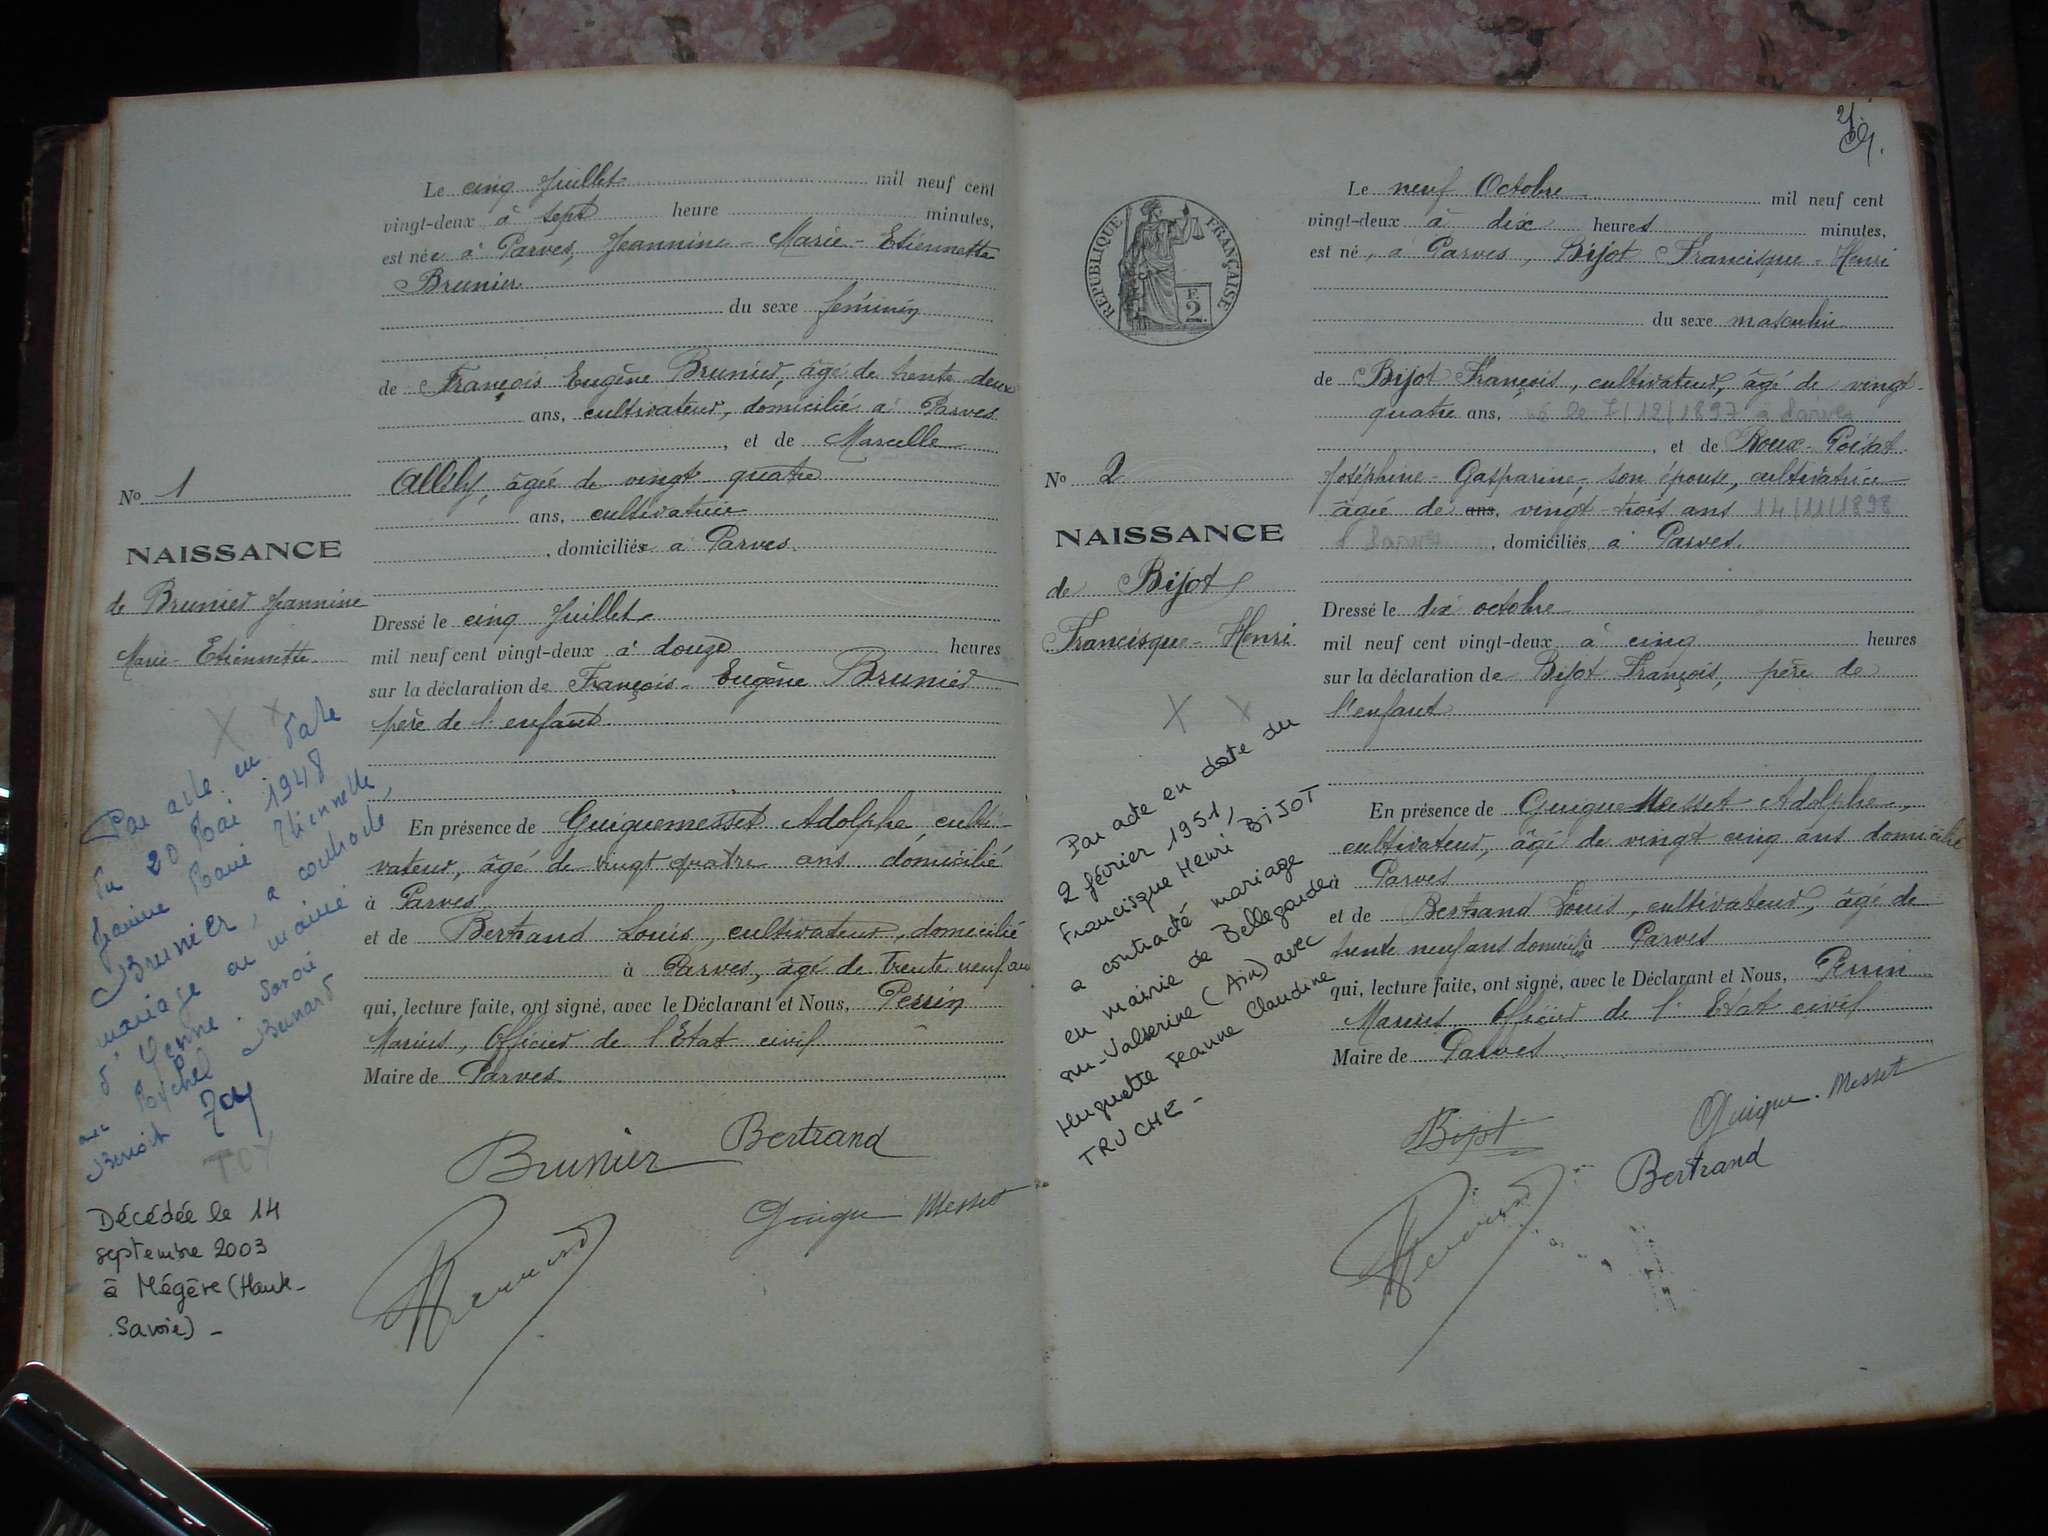 Le cinq Juillet mil neuf cent
vingt-deux à sept heure minutes,
est née à Parves, Jeannine - Marie - Etiennette
Brunier
du sexe féminin
de François Eugène Brunier, âgé de trente deux
ans, cultivateur, domicilié à Parves
, et de Marcelle
Allély, âgée de vingt-quatre
ans, cultivatrice
, domiciliés à Parves.
No 1
NAISSANCE
de Brunier Jeannine
Marie - Etiennette
Dressé le cinq Juillet
mil neuf cent vingt-deux à douze heures
sur la déclaration de François - Eugène Brunier
père de l'enfant
En présence de Guiguemesset Adolphe culti-
vateur, âgé de vingt quatre ans domicilié
à Parves
et de Bertrand Louis, cultivateur, domicilié
à Parves, âgé de trente neuf ans
qui, lecture faite, ont signé, avec le Déclarant et Nous, Perrin
Marius, Officier de l'Etat civil
Maire de Parves
X X
Par acte en date
du 20 Mai 1948
Jeanine Marie Etiennette
Brunier, a contracté
mariage en mairie
d'Yenne. Savoie
avec Michel Bernard
Benoit Toy
TOY
Décédée le 14
septembre 2003
à Mégève (Haute-
Savoie) -
Brunier Bertrand
Guigue Messet
2
Le neuf Octobre mil neuf cent
vingt-deux à dix heures minutes,
est né, à Parves, Bijot Francisque - Henri
du sexe masculin
de Bijot François, cultivateur, âgé de vingt-
quatre ans, né le 7/12/1897 à Parves
, et de Roux-Poisat
Joséphine - Gasparine, son épouse, cultivatrice
âgée de ans, vingt-trois ans 14/11/1898
à Parves, domiciliés à Parves.
RÉPUBLIQUE FRANÇAISE
F.
2
No 2
NAISSANCE
de Bijot
Francisque - Henri
Dressé le dix octobre
mil neuf cent vingt-deux à cinq heures
sur la déclaration de Bijot François, père de
l'enfant
En présence de Guigue Messet Adolphe,
cultivateur, âgé de vingt cinq ans domicilié
à Parves
et de Bertrand Louis, cultivateur, âgé de
trente neuf ans domicilié à Parves
qui, lecture faite, ont signé, avec le Déclarant et Nous, Perrin
Marius Officier de l'Etat civil
Maire de Parves
X X
Par acte en date du
2 février 1951,
Francisque Henri BIJOT
a contracté mariage
en mairie de Bellegarde
sur-Valserine (Ain) avec
Huguette Jeanne Claudine
TRUCHE -
Bijot Guigue-Messet
Bertrand